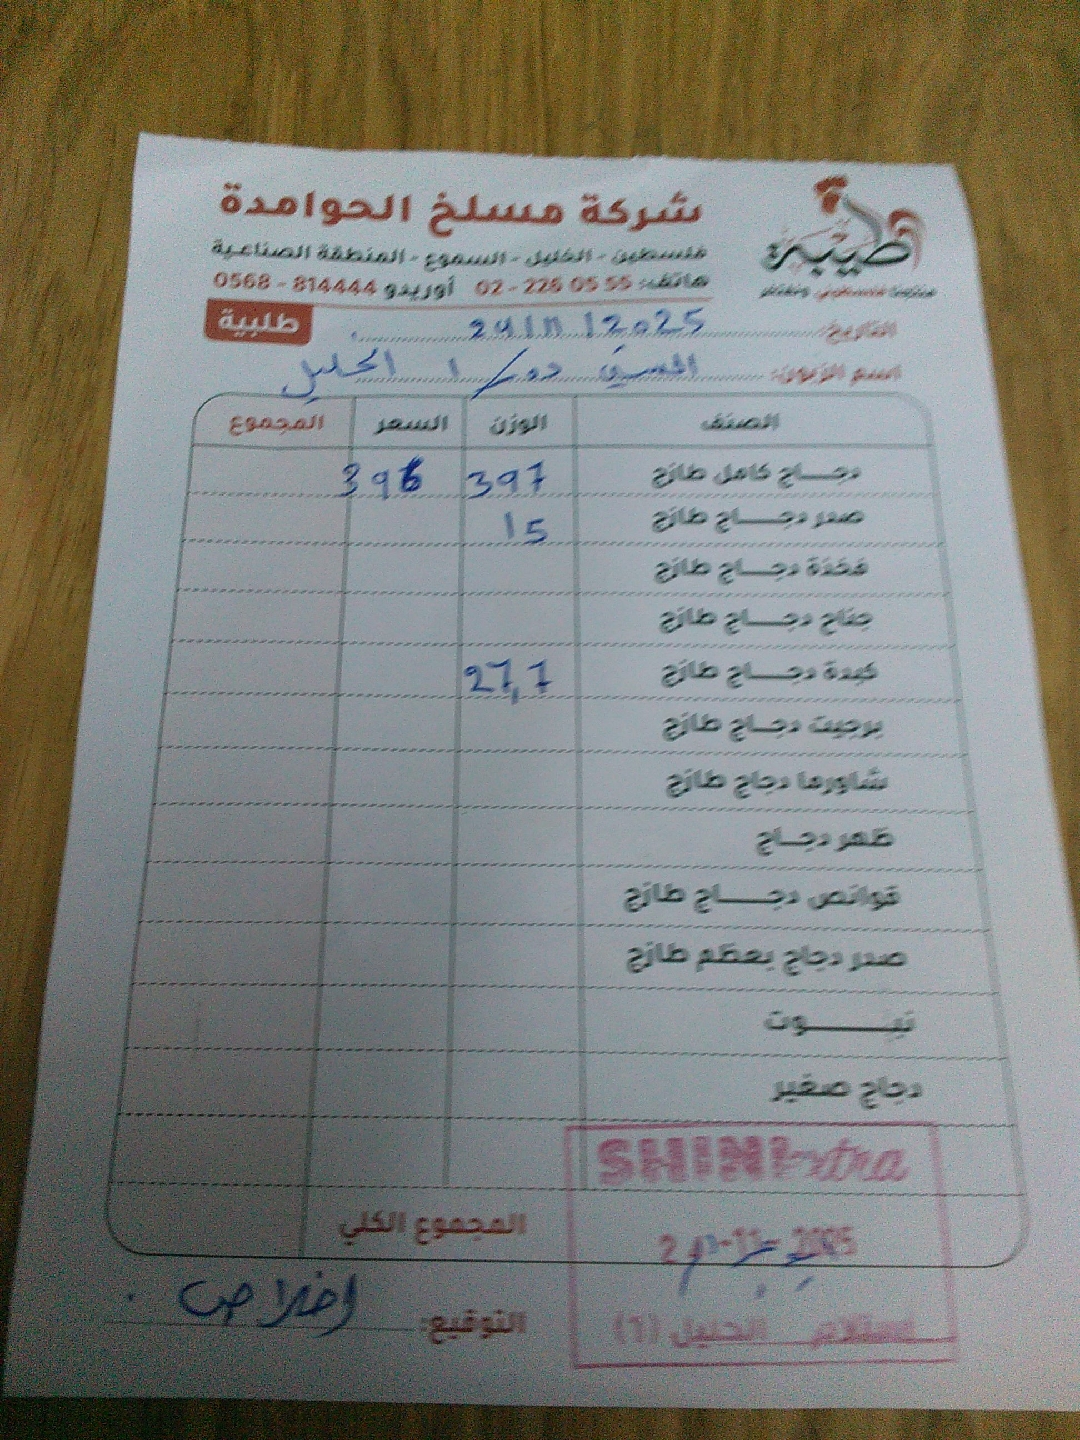 طيبة
منتوجنا فلسطيني ونفتخر
شركة مسلخ الحوامدة
فلسطين - الخليل - السموع - المنطقة الصناعية
هاتف: 02 - 226 05 55 أوريدو 0568 - 814444
طلبية
التاريخ: 24/11/2025
اسم الزبون: 1 الخليل
الصنف الوزن السعر المجموع
دجاج كامل طازج 397 396
صدر دجاج طازج 15
فخدة دجاج طازج
جناح دجاج طازج
كبدة دجاج طازج 27,7
برجيت دجاج طازج
شاورما دجاج طازج
ظهر دجاج
قوانص دجاج طازج
صدر دجاج بعظم طازج
نيوت
دجاج صغير
SHINI extra
المجموع الكلي
استلام الخليل (1)
التوقيع: اخلاص